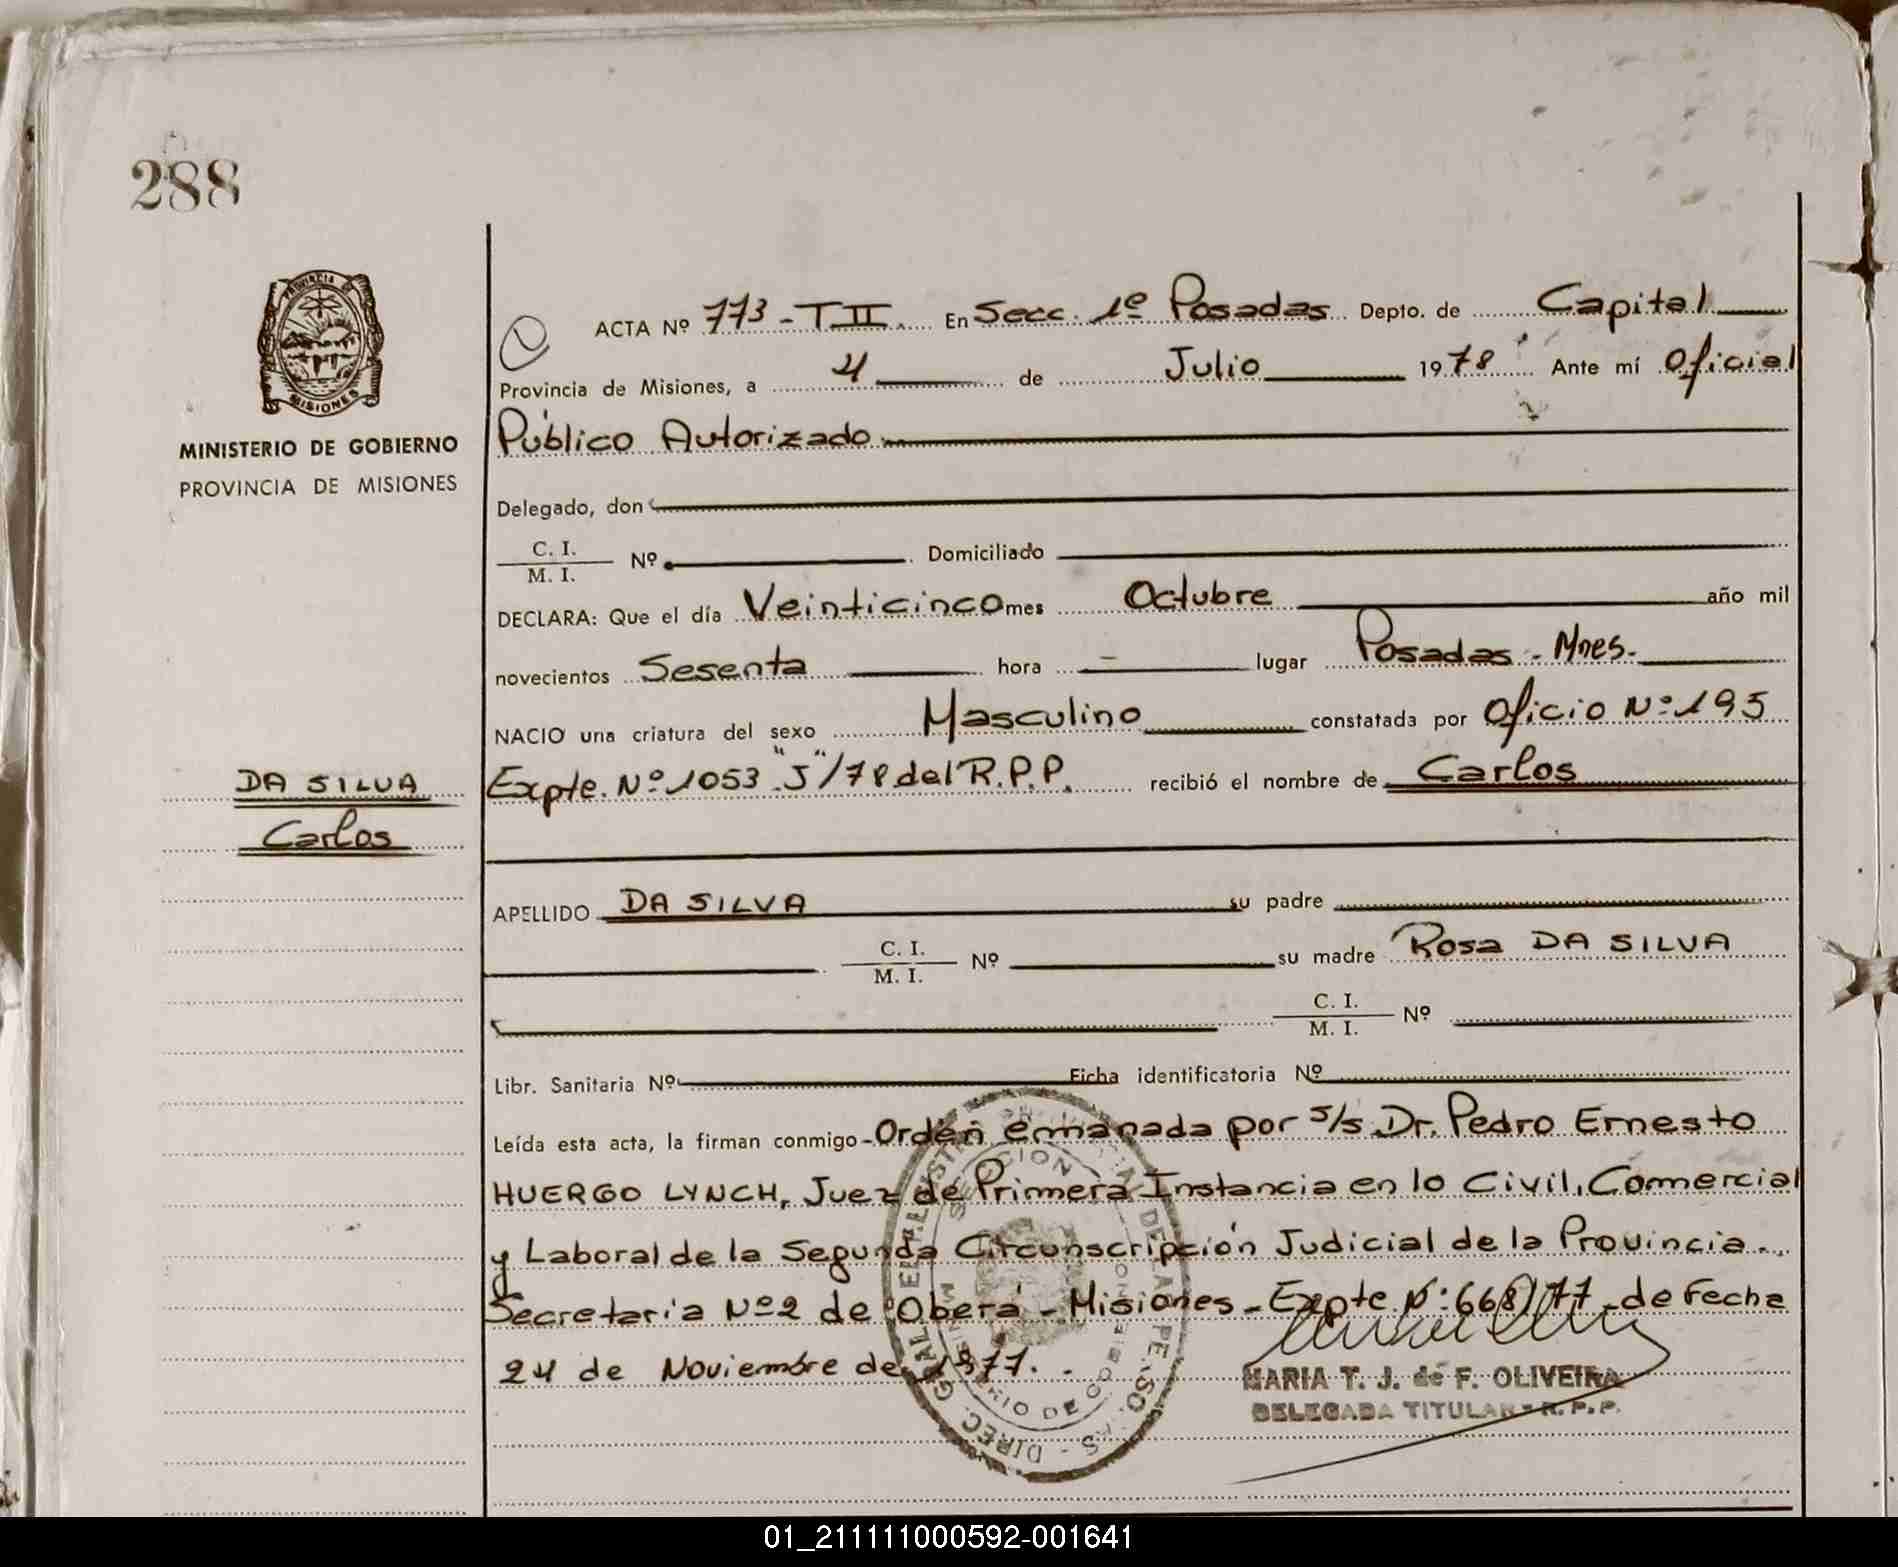 288
PROVINCIA DE
MISIONES
MINISTERIO DE GOBIERNO
PROVINCIA DE MISIONES
ACTA Nº 773-T II. En Secc. 1º Posadas Depto. de Capital
Provincia de Misiones, a 4 de Julio 1978 Ante mí Oficial
Público Autorizado
Delegado, don
C. I.
M. I. Nº Domiciliado
DECLARA: Que el día Veinticinco mes Octubre año mil
novecientos Sesenta hora - lugar Posadas - Mnes.
NACIO una criatura del sexo Masculino constatada por Oficio Nº 195
DA SILVA
Expte. Nº 1053 "J"/78 del R.P.P. recibió el nombre de Carlos
Carlos
APELLIDO DA SILVA su padre
C. I.
M. I. Nº su madre Rosa DA SILVA
C. I.
M. I. Nº
Libr. Sanitaria Nº Ficha identificatoria Nº
Leída esta acta, la firman conmigo - Orden emanada por S/S Dr. Pedro Ernesto
HUERGO LYNCH, Juez de Primera Instancia en lo Civil, Comercial
y Laboral de la Segunda Circunscripción Judicial de la Provincia.
Secretaria Nº 2 de Oberá - Misiones - Expte Nº: 668/77 - de Fecha
24 de Noviembre de 1977.
MARIA T. J. de F. OLIVEIRA
DELEGADA TITULAR - R.P.P.
01_211111000592-001641